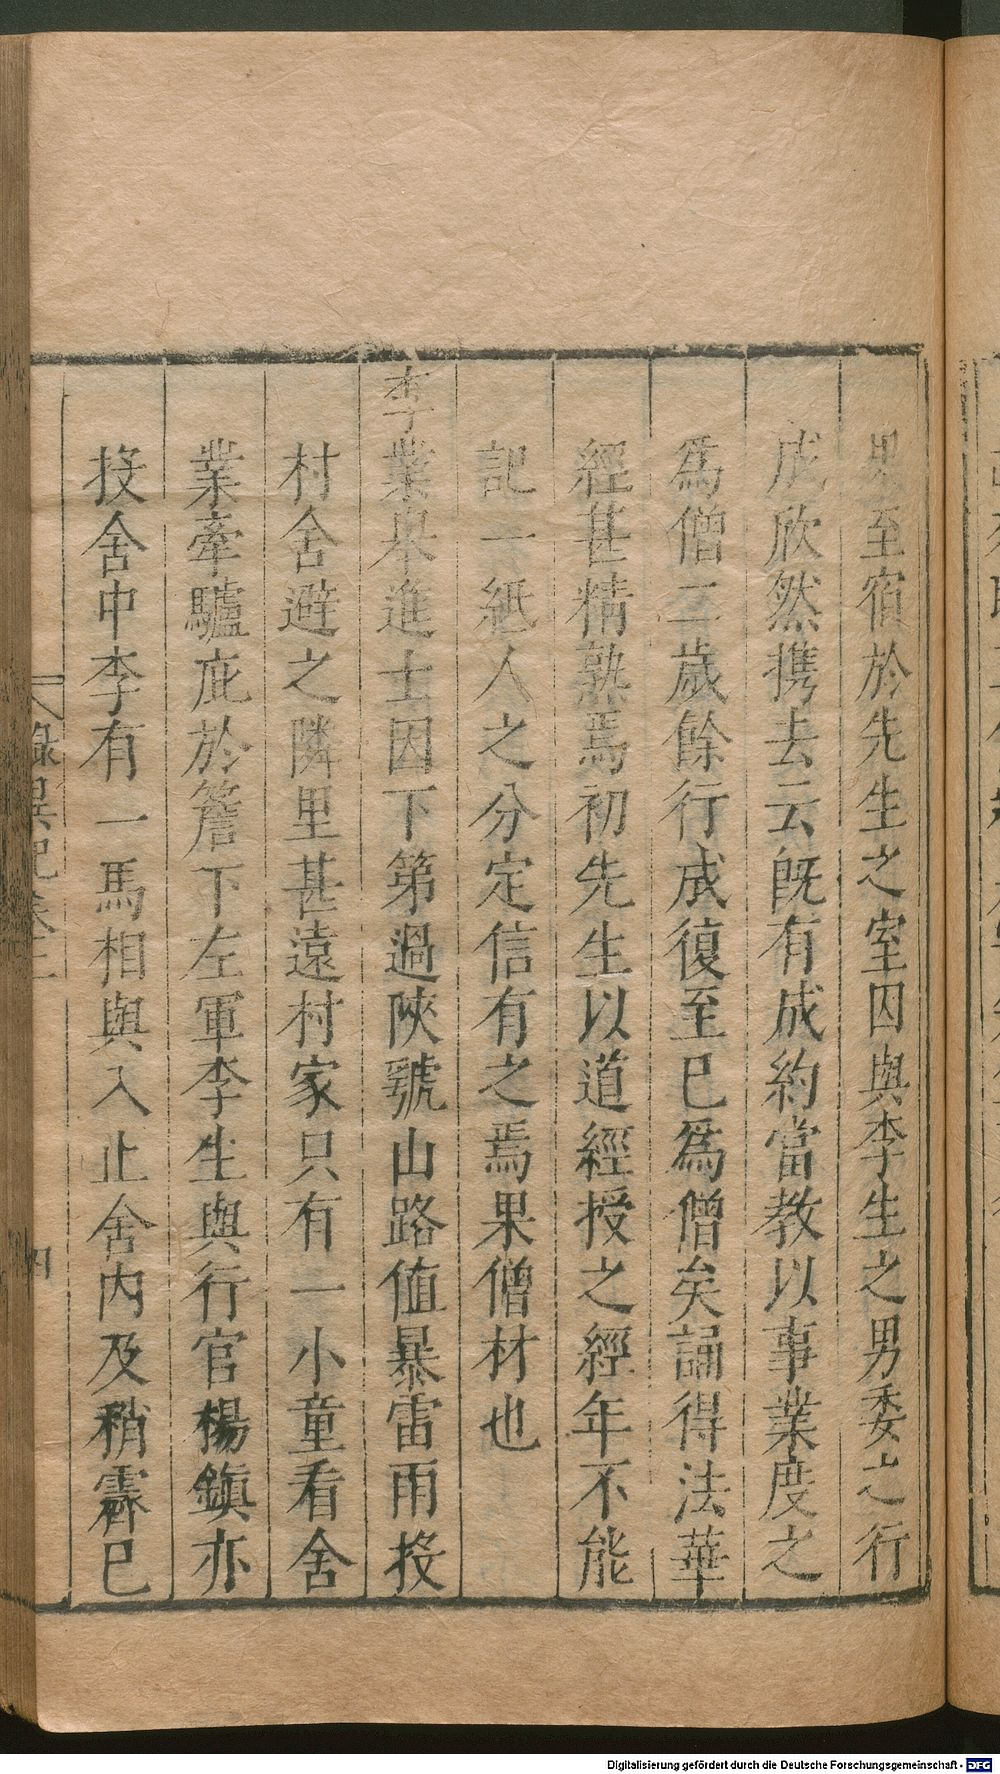 男至宿於先生之室因與李生之男委之行
成欣然携去云旣有成約當教以事業度之
爲僧二歲餘行成復至已爲僧矣誦得法華
經甚精熟焉初先生以道經授之經年不能
記一紙人之分定信有之焉果僧材也
李業舉進士因下第過陜虢山路值暴雷雨投
村舍避之隣里甚遠村家只有一小童看舍
業牽驢庇於簷下左軍李生與行官楊鎭亦
投舍中李有一馬相與入止舍内及稍霽已
錄異記卷三
四
Digitalisierung gefördert durch die Deutsche Forschungsgemeinschaft - DFG